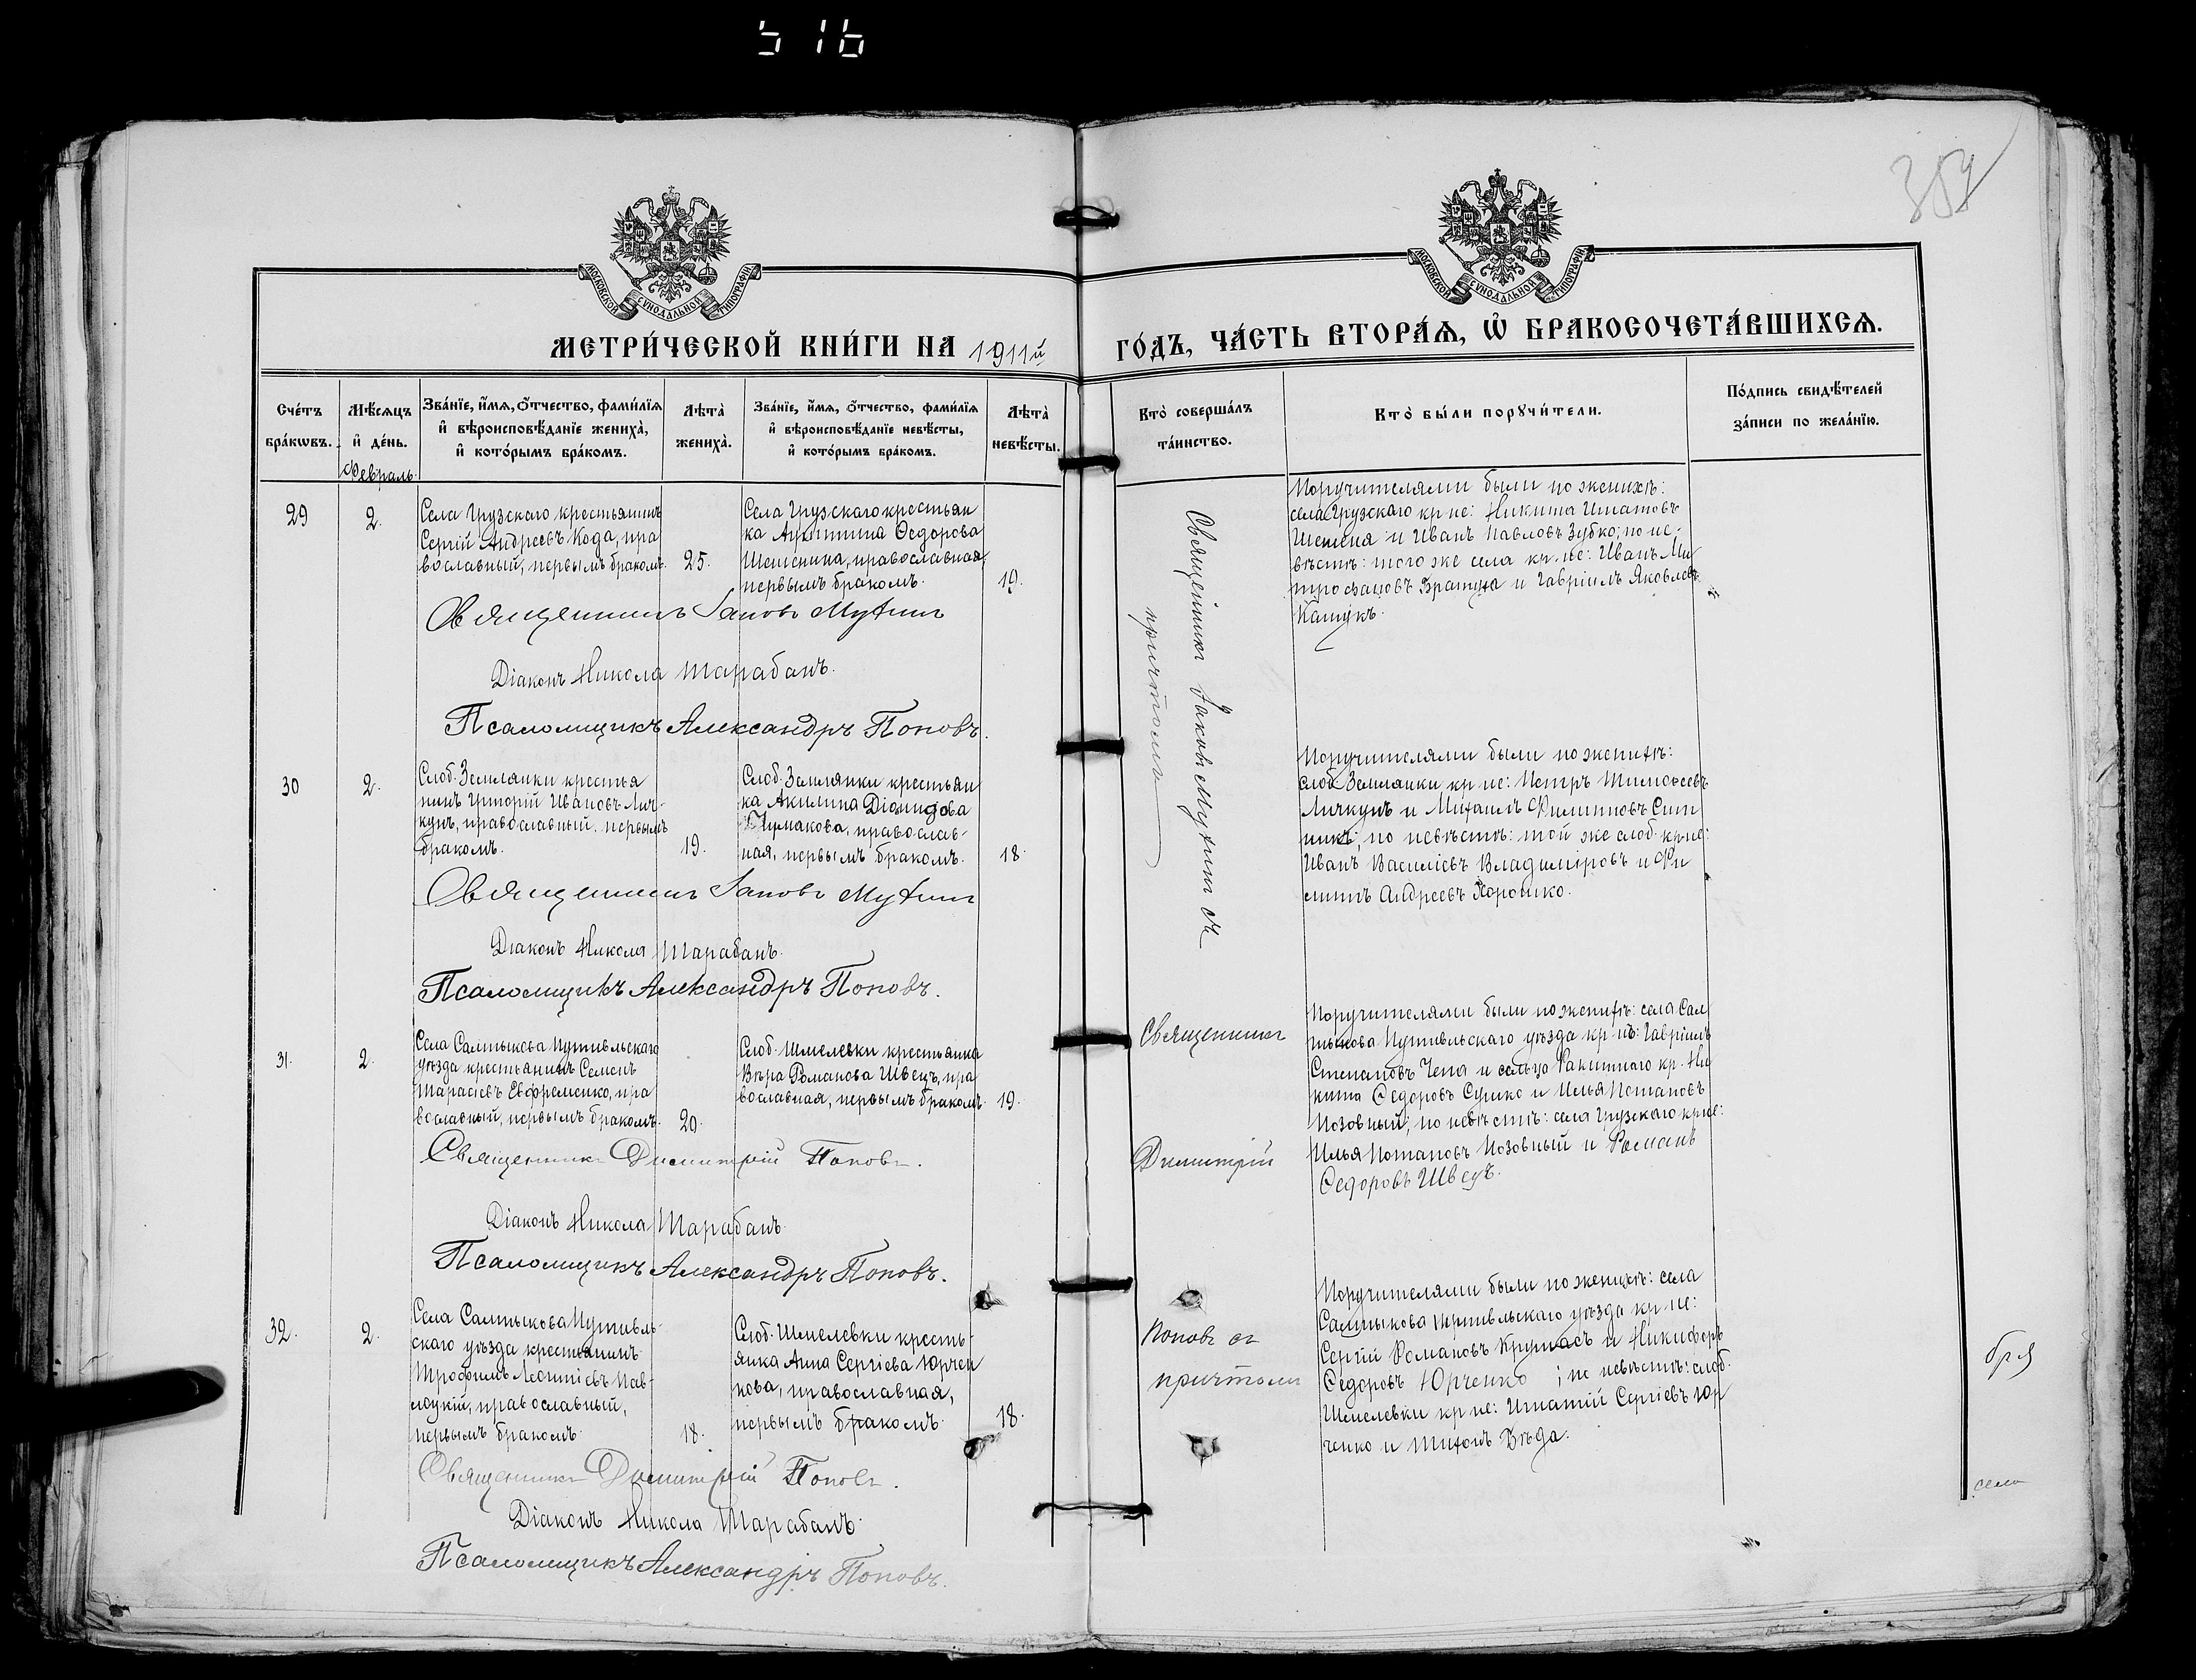 516
354
МОСКОВСКОЙ СѴНОДАЛЬНОЙ ТИПОГРАФІИ
МОСКОВСКОЙ СѴНОДАЛЬНОЙ ТИПОГРАФІИ
МЕТРИ́ЧЕСКОЙ КНИ́ГИ НА 1911й ГО́ДЪ, ЧА́СТЬ ВТОРА́Ѧ, Ѽ БРАКОСОЧЕТА́ВШИХСѦ.
Сче́тъ
бра́кѡвъ.
Мѣ́сѧцъ
и҆ де́нь.
Февраль.
Зва́нїе, и҆́мѧ, ѻ҆́тчество, фами́лїѧ
и҆ вѣроисповѣ́данїе жениха̀,
и҆ кото́рымъ бра́комъ.
Лѣта̀
жениха̀.
Зва́нїе, и҆́мѧ, ѻ҆́тчество, фами́лїѧ
и҆ вѣроисповѣ́данїе невѣ́сты,
и҆ кото́рымъ бра́комъ.
Лѣта̀
невѣ́сты.
Кто̀ соверша́лъ
та́инство.
Кто̀ бы́ли порꙋчи́тели.
По́дпись свидѣ́телей
за́писи по жела́нїю.
29
2.
Села Грузскаго крестьянинъ
Сергій Андреевъ Кода, пра
вославный, первымъ бракомъ.
25.
Села Грузскаго крестьян
ка Акилина Ѳедорова
Шешенина, православная,
первымъ бракомъ.
19.
Поручителями были по женихѣ:
села Грузскаго кр не: Никита Игнатовъ
Шешеня и Иванъ Павловъ Зубко; по не-
вѣстѣ: того же села кр. не: Иванъ Ми
трофановъ Братуха и Гавріилъ Яковлевъ
Кащукъ.
Священникъ Іаковъ Мухинъ
Діаконъ Никола Тарабанъ.
Псаломщикъ Александръ Поповъ.
Священникъ Іаковъ Мухинъ съ
причтомъ
30
2.
Слоб. Землянки крестья
нинъ Григорій Ивановъ Лич-
кунъ, православный, первымъ
бракомъ.
19.
Слоб. Землянки крестьян
ка Акилина Діомидова
Чумакова, православ-
ная, первымъ бракомъ.
18.
Поручителями были по женихѣ:
слоб. Землянки кр не: Петръ Тимоѳеевъ
Личкунъ и Михаилъ Филипповъ Сит
никъ; по невѣстѣ: той же слоб. кр не:
Иванъ Василіевъ Владиміровъ и Фи
липпъ Андреевъ Хорошко.
Священникъ Іаковъ Мухинъ
Діаконъ Никола Тарабанъ.
Псаломщикъ Александръ Поповъ.
31.
2.
Села Салтыкова Путивльскаго
уѣзда крестьянинъ Семенъ
Тарасіевъ Евфременко, пра
вославный, первымъ бракомъ.
20.
Слоб. Шмелевки крестьянка
Вѣра Романова Швецъ, пра
вославная, первымъ бракомъ.
19.
Священникъ
Димитрій
Поручителями были по женихѣ: села Сал
тыкова Путивльскаго уѣзда кр нъ: Гавріилъ
Степановъ Чепа и сельца Ракитного кр. Ни
кита Ѳедоровъ Сушко и Илья Потаповъ
Позовный; по невѣстѣ: села Грузскаго кр не:
Илья Потаповъ Позовный и Романъ
Ѳедоровъ Швецъ.
Священникъ Димитрій Поповъ.
Діаконъ Никола Тарабанъ.
Псаломщикъ Александръ Поповъ.
32.
2.
Села Салтыкова Путивль-
скаго уѣзда крестьянинъ
Трофимъ Леонтіевъ Пав-
лоцкій, православный,
первымъ бракомъ.
18.
Слоб. Шмелевки кресть-
янка Анна Сергіева Юрчен
кова, православная,
первымъ бракомъ.
18.
Поповъ съ
причтомъ
Поручителями были по женихѣ: села
Салтыкова Путивльскаго уѣзда кр не:
Сергій Романовъ и Никифоръ
Ѳедоровъ Юрченко; по невѣстѣ: слоб.
Шмелевки кр не: Игнатій Сергіевъ Юр
ченко и Тихонъ Бѣда.
Священникъ Димитрій Поповъ.
Діаконъ Никола Тарабанъ.
Псаломщикъ Александръ Поповъ.
село